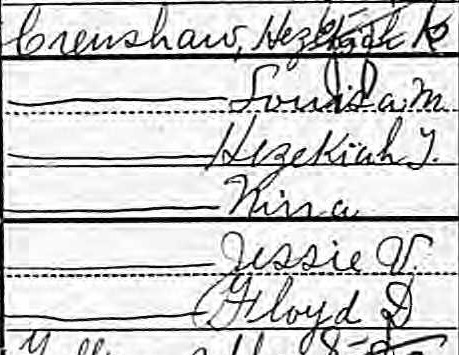 Crenshaw, Hezekiah K
——— Louisa M
——— Hezekiah T.
——— Nina
——— Jessie V.
——— Floyd D